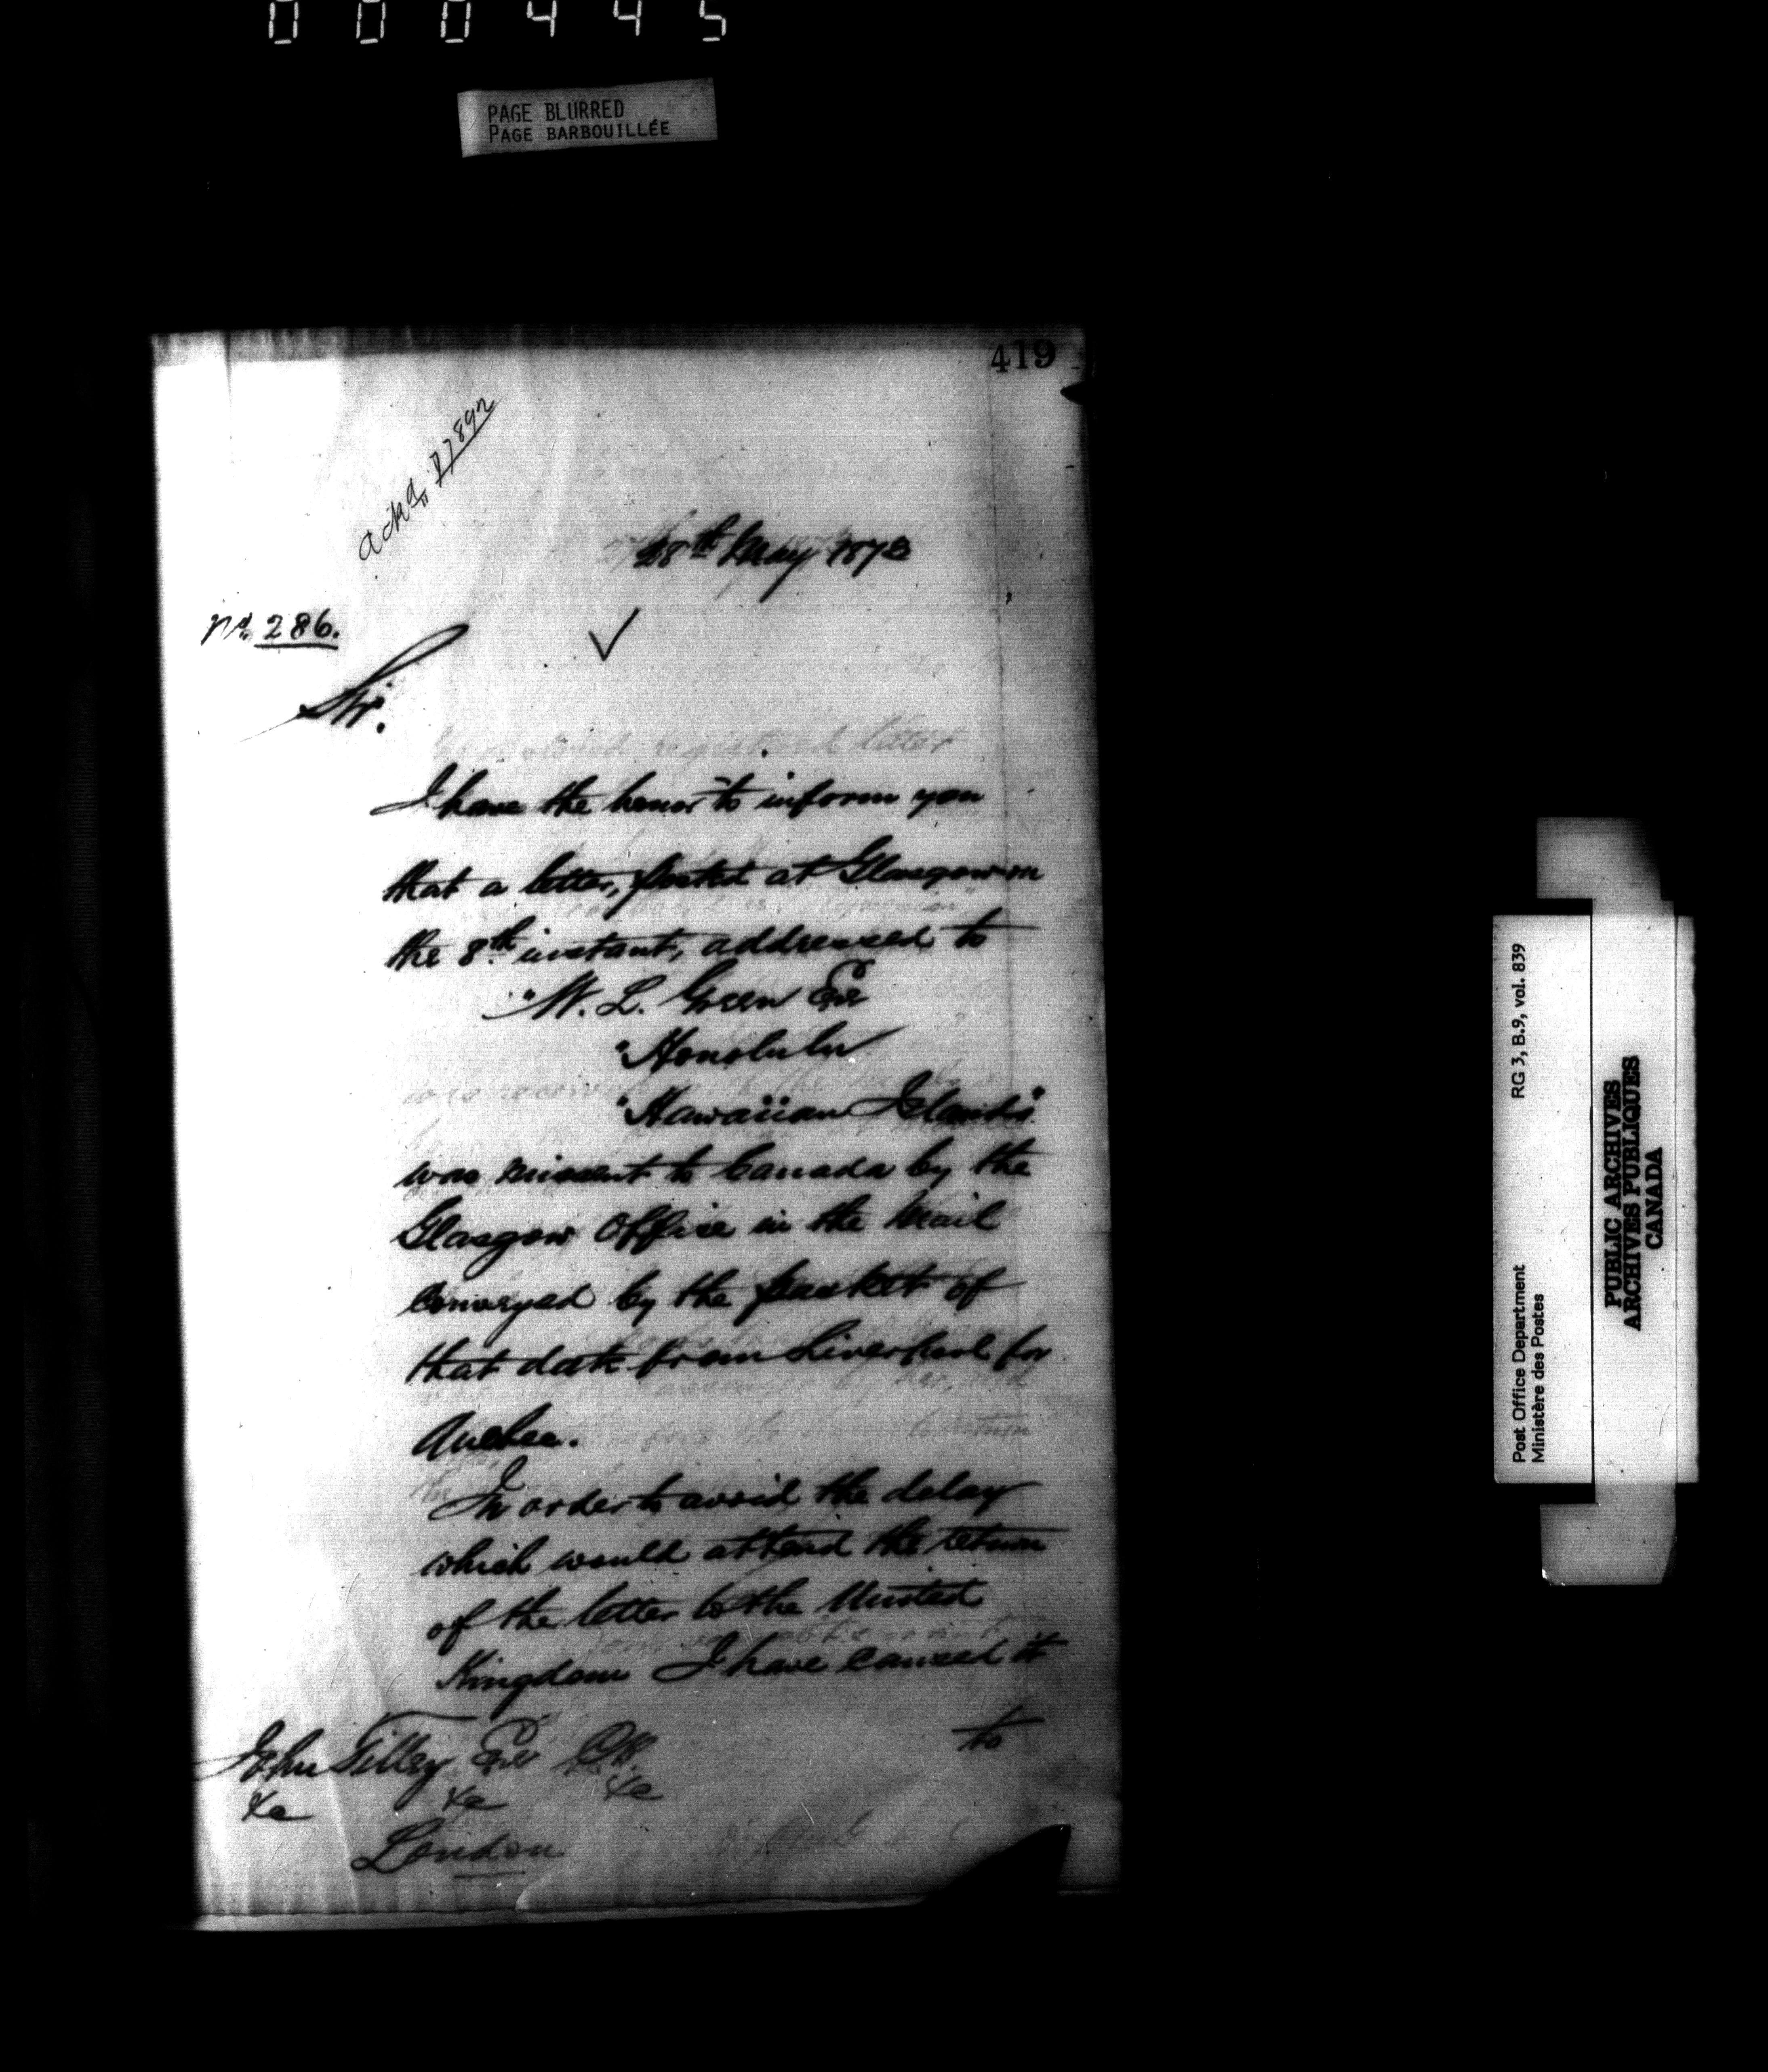 000445
PAGE BLURRED
PAGE BARBOUILLÉE
419
Ackd. 77892
28th May 1873
No. 286.
Sir.
I have the honor to inform you
that a letter, posted at Glasgow on
the 8th instant, addressed to
"W. L. Green Esr
"Honolulu
"Hawaiian Islands"
was missent to Canada by the
Glasgow Office in the Mail
conveyed by the packet of
that date from Liverpool for
Quebec.
In order to avoid the delay
which would attend the return
of the letter to the United
Kingdom I have caused it
to
John Tilley Esr C.B.
&c &c &c
London
Post Office Department RG 3, B.9, vol. 839
Ministère des Postes
PUBLIC ARCHIVES
ARCHIVES PUBLIQUES
CANADA